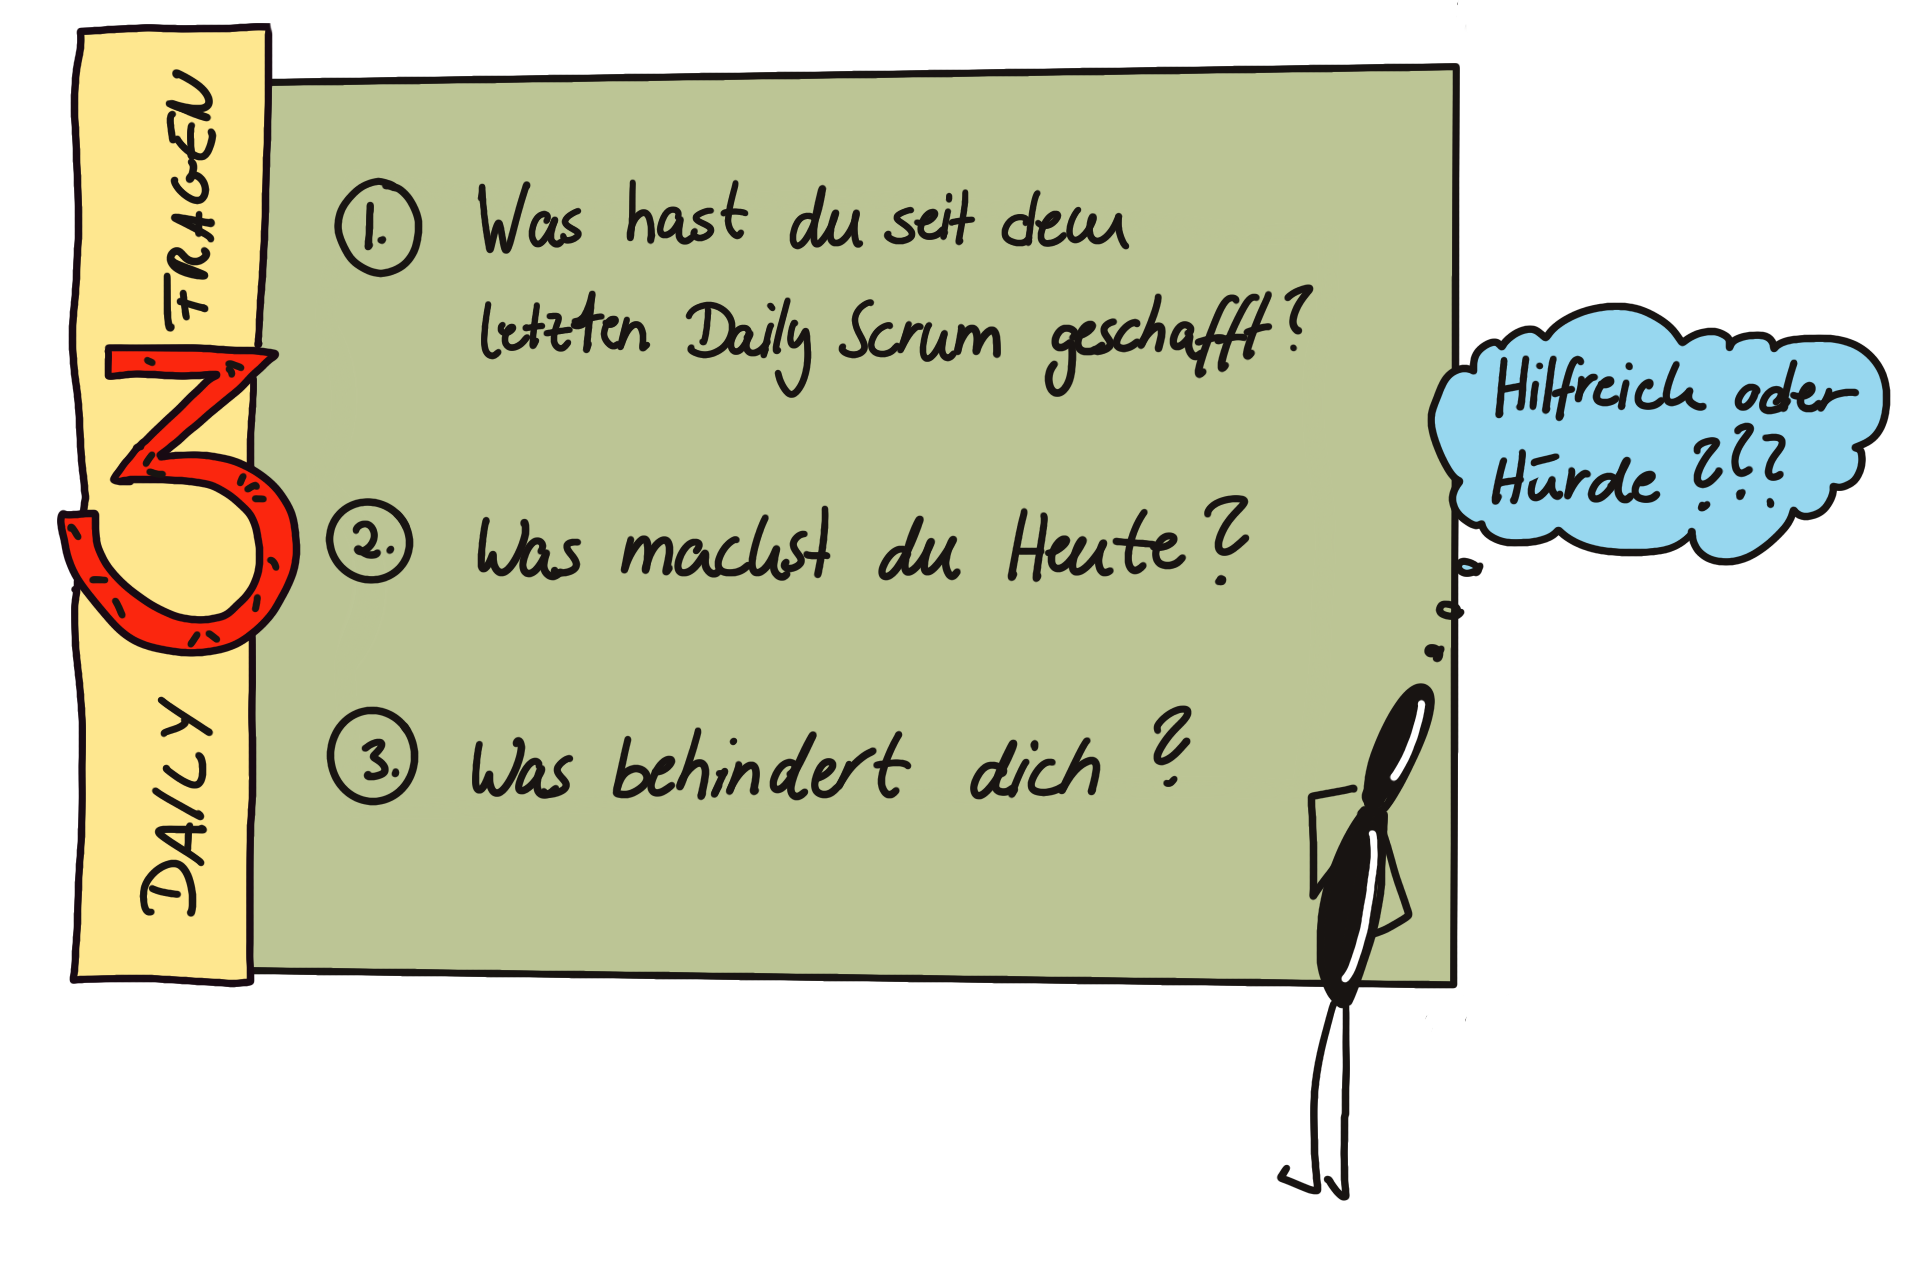 DAILY 3 FRAGEN
1. Was hast du seit dem
letzten Daily Scrum geschafft?
2. Was machst du Heute?
3. Was behindert dich?
Hilfreich oder
Hürde ???